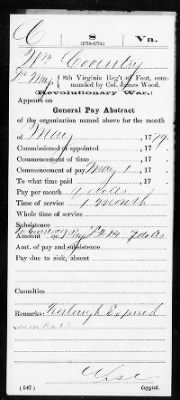 C 8 Vn.
(1778-1779.)
Wm Coventry
8th Virginia Reg't of Foot, com-
manded by Col. James Wood.
(Revolutionary War.)
Appears on
General Pay Abstract
of the organization named above for the month
of May, 1779.
Commissioned or appointed , 17
Commencement of time , 17
Commencement of pay May 1, 17
To what time paid , 17
Pay per month
Time of service 1 month
Whole time of service
Subsistence
Amount of Pay dolls
Amt. of pay and subsistence
Pay due to, sick, absent
Casualties
Remarks: Furlough Expired
(547) Copyist.